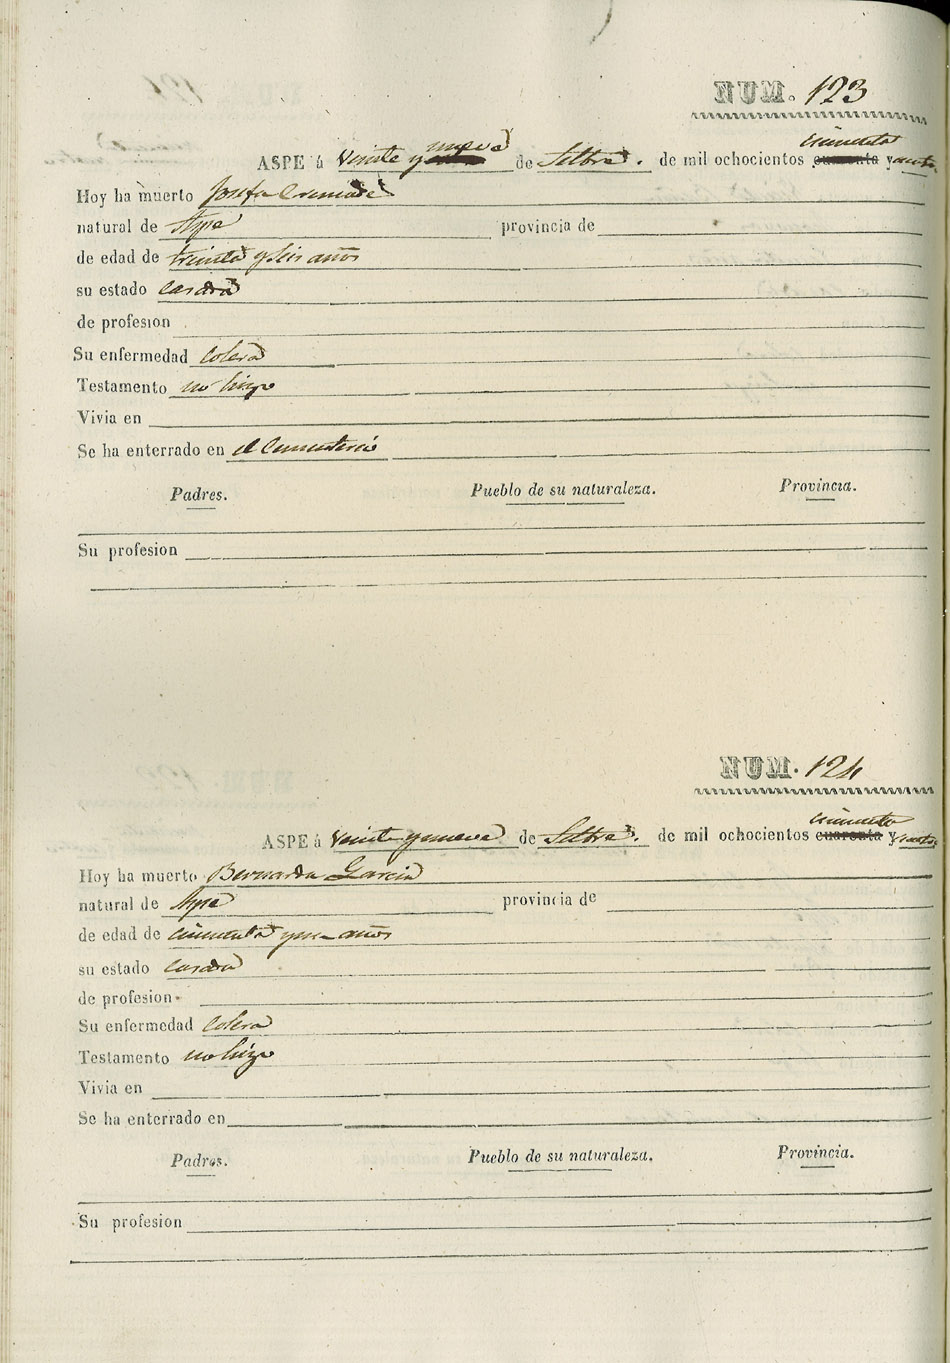 NUM. 123
nueve cincuenta
ASPE á veinte y de Setbre. de mil ochocientos cuarenta y
Hoy ha muerto Josefa Cremade
natural de Aspe provincia de
de edad de treinta y seis años
su estado casada
de profesion
Su enfermedad colera
Testamento no hizo
Vivia en
Se ha enterrado en el Cementerio
Padres. Pueblo de su naturaleza. Provincia.
Su profesion
NUM. 124
cincuenta
ASPE á veinte y nueve de Setbre. de mil ochocientos cuarenta y
Hoy ha muerto Bernarda Garcia
natural de Aspe provincia de
de edad de cincuenta y años
su estado casada
de profesion
Su enfermedad colera
Testamento no hizo
Vivia en
Se ha enterrado en
Padres. Pueblo de su naturaleza. Provincia.
Su profesion